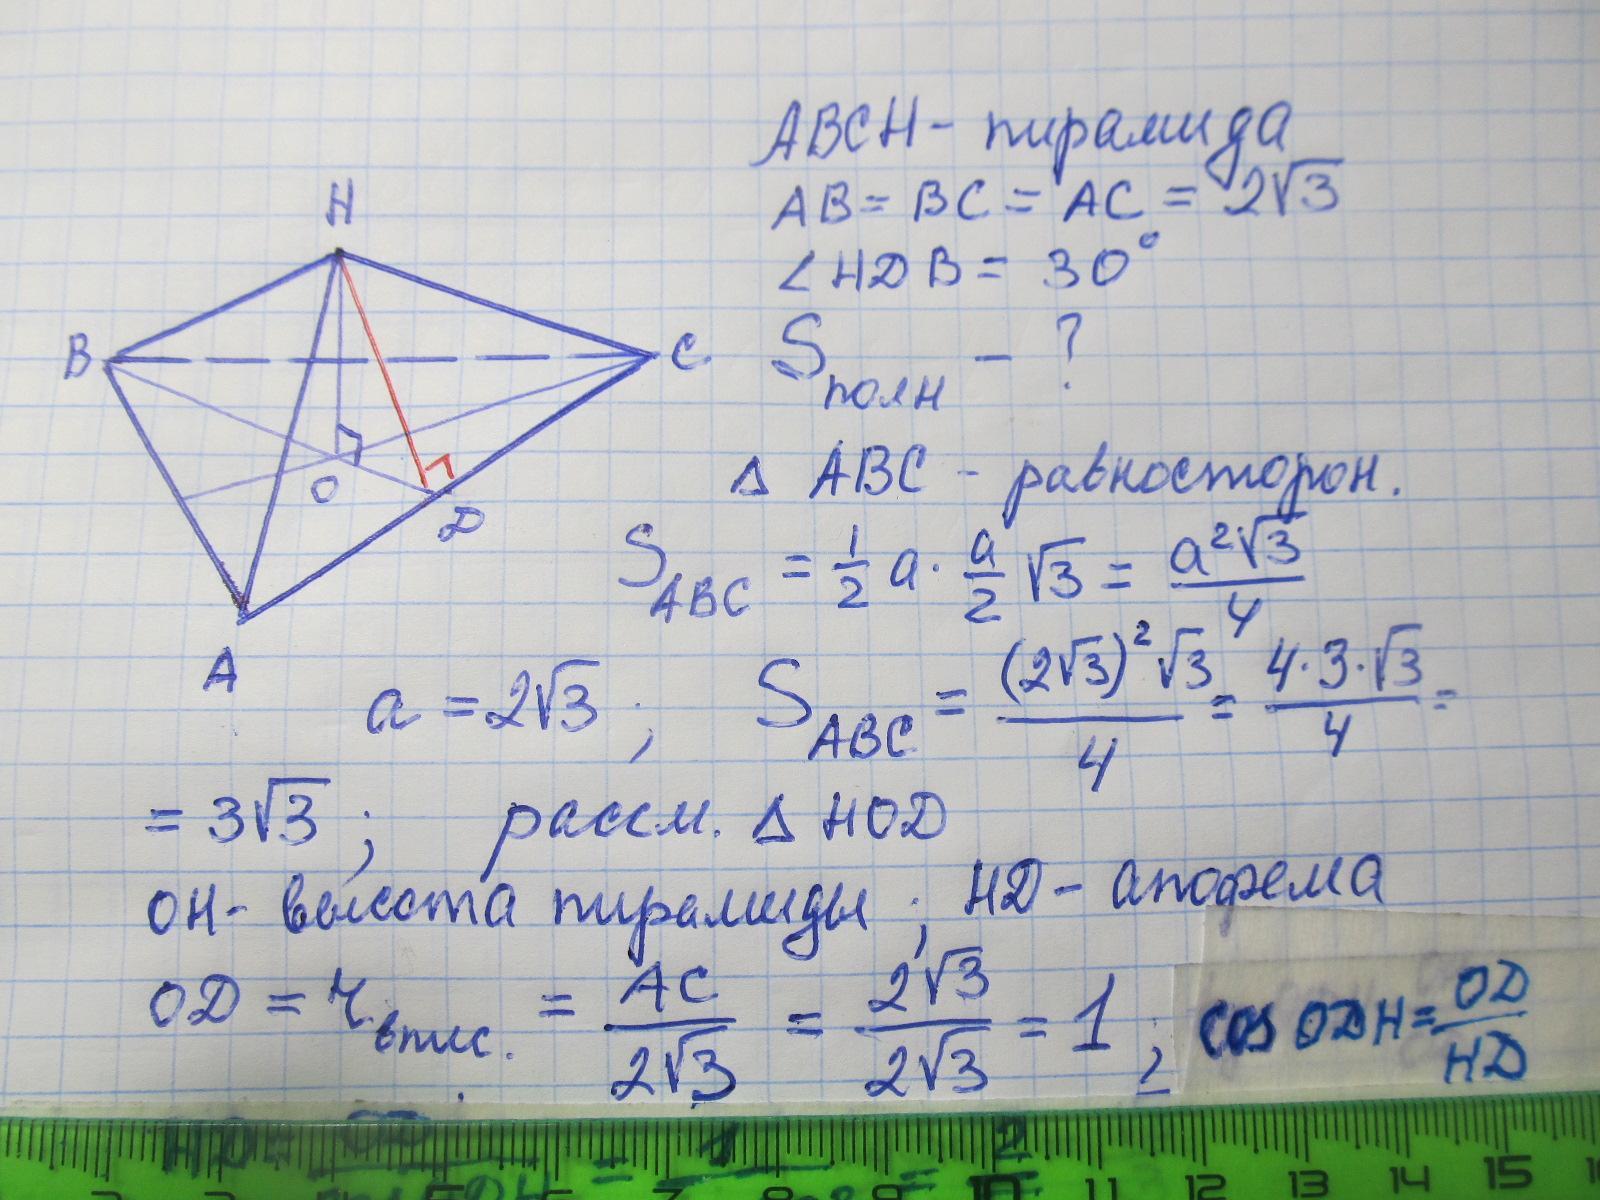 H
B
C
O
D
A
ABCH - пирамида
AB = BC = AC = 2√3
∠HDB = 30°
Sполн - ?
Δ ABC - равносторон.
S_ABC = 1/2 a · a/2 √3 = a²√3/4
a = 2√3 ; S_ABC = (2√3)²√3/4 = 4·3·√3/4 =
= 3√3 ; рассм. Δ HOD
OH - высота пирамиды ; HD - апофема
OD = r впис. = AC/2√3 = 2√3/2√3 = 1 ; cos ODH = OD/HD
HD = OD = 1 = 2
7 8 9 10 11 12 13 14 15